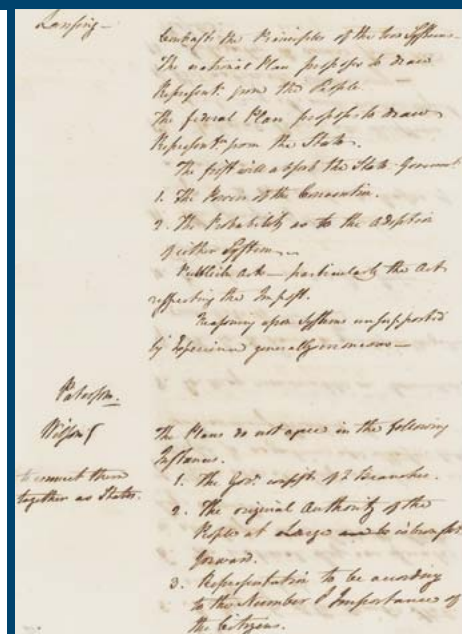 Lansing —
Contrasts the Principles of the two Systems —
The national Plan proposes to draw
Represent. from the People.
The federal Plan proposes to draw
Represent. from the States.
The first will absorb the State-Governmts
1. The Powers of the Convention.
2. The Probability as to the Adoption
of either System. —
Publick Acts — particularly the Act
respecting the Impost.
Reasoning upon Systems unsupported
by Experience generally erroneous —
Paterson.
Wilson
The Plans do not agree in the following
Instances.
to connect them
together as States.
1. The Govt. consists of 2 Branches.
2. The original Authority of the
People at Large to be brought
forward.
3. Representation to be according
to the Number & Importance of
the Citizens.